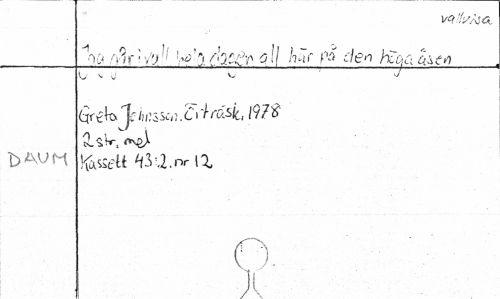 vallvisa
Jag går i vall hela dagen all här på den höga åsen
Greta Johnsson, Örträsk, 1978
2 str, mel
DAUM Kassett 43:2. nr 12